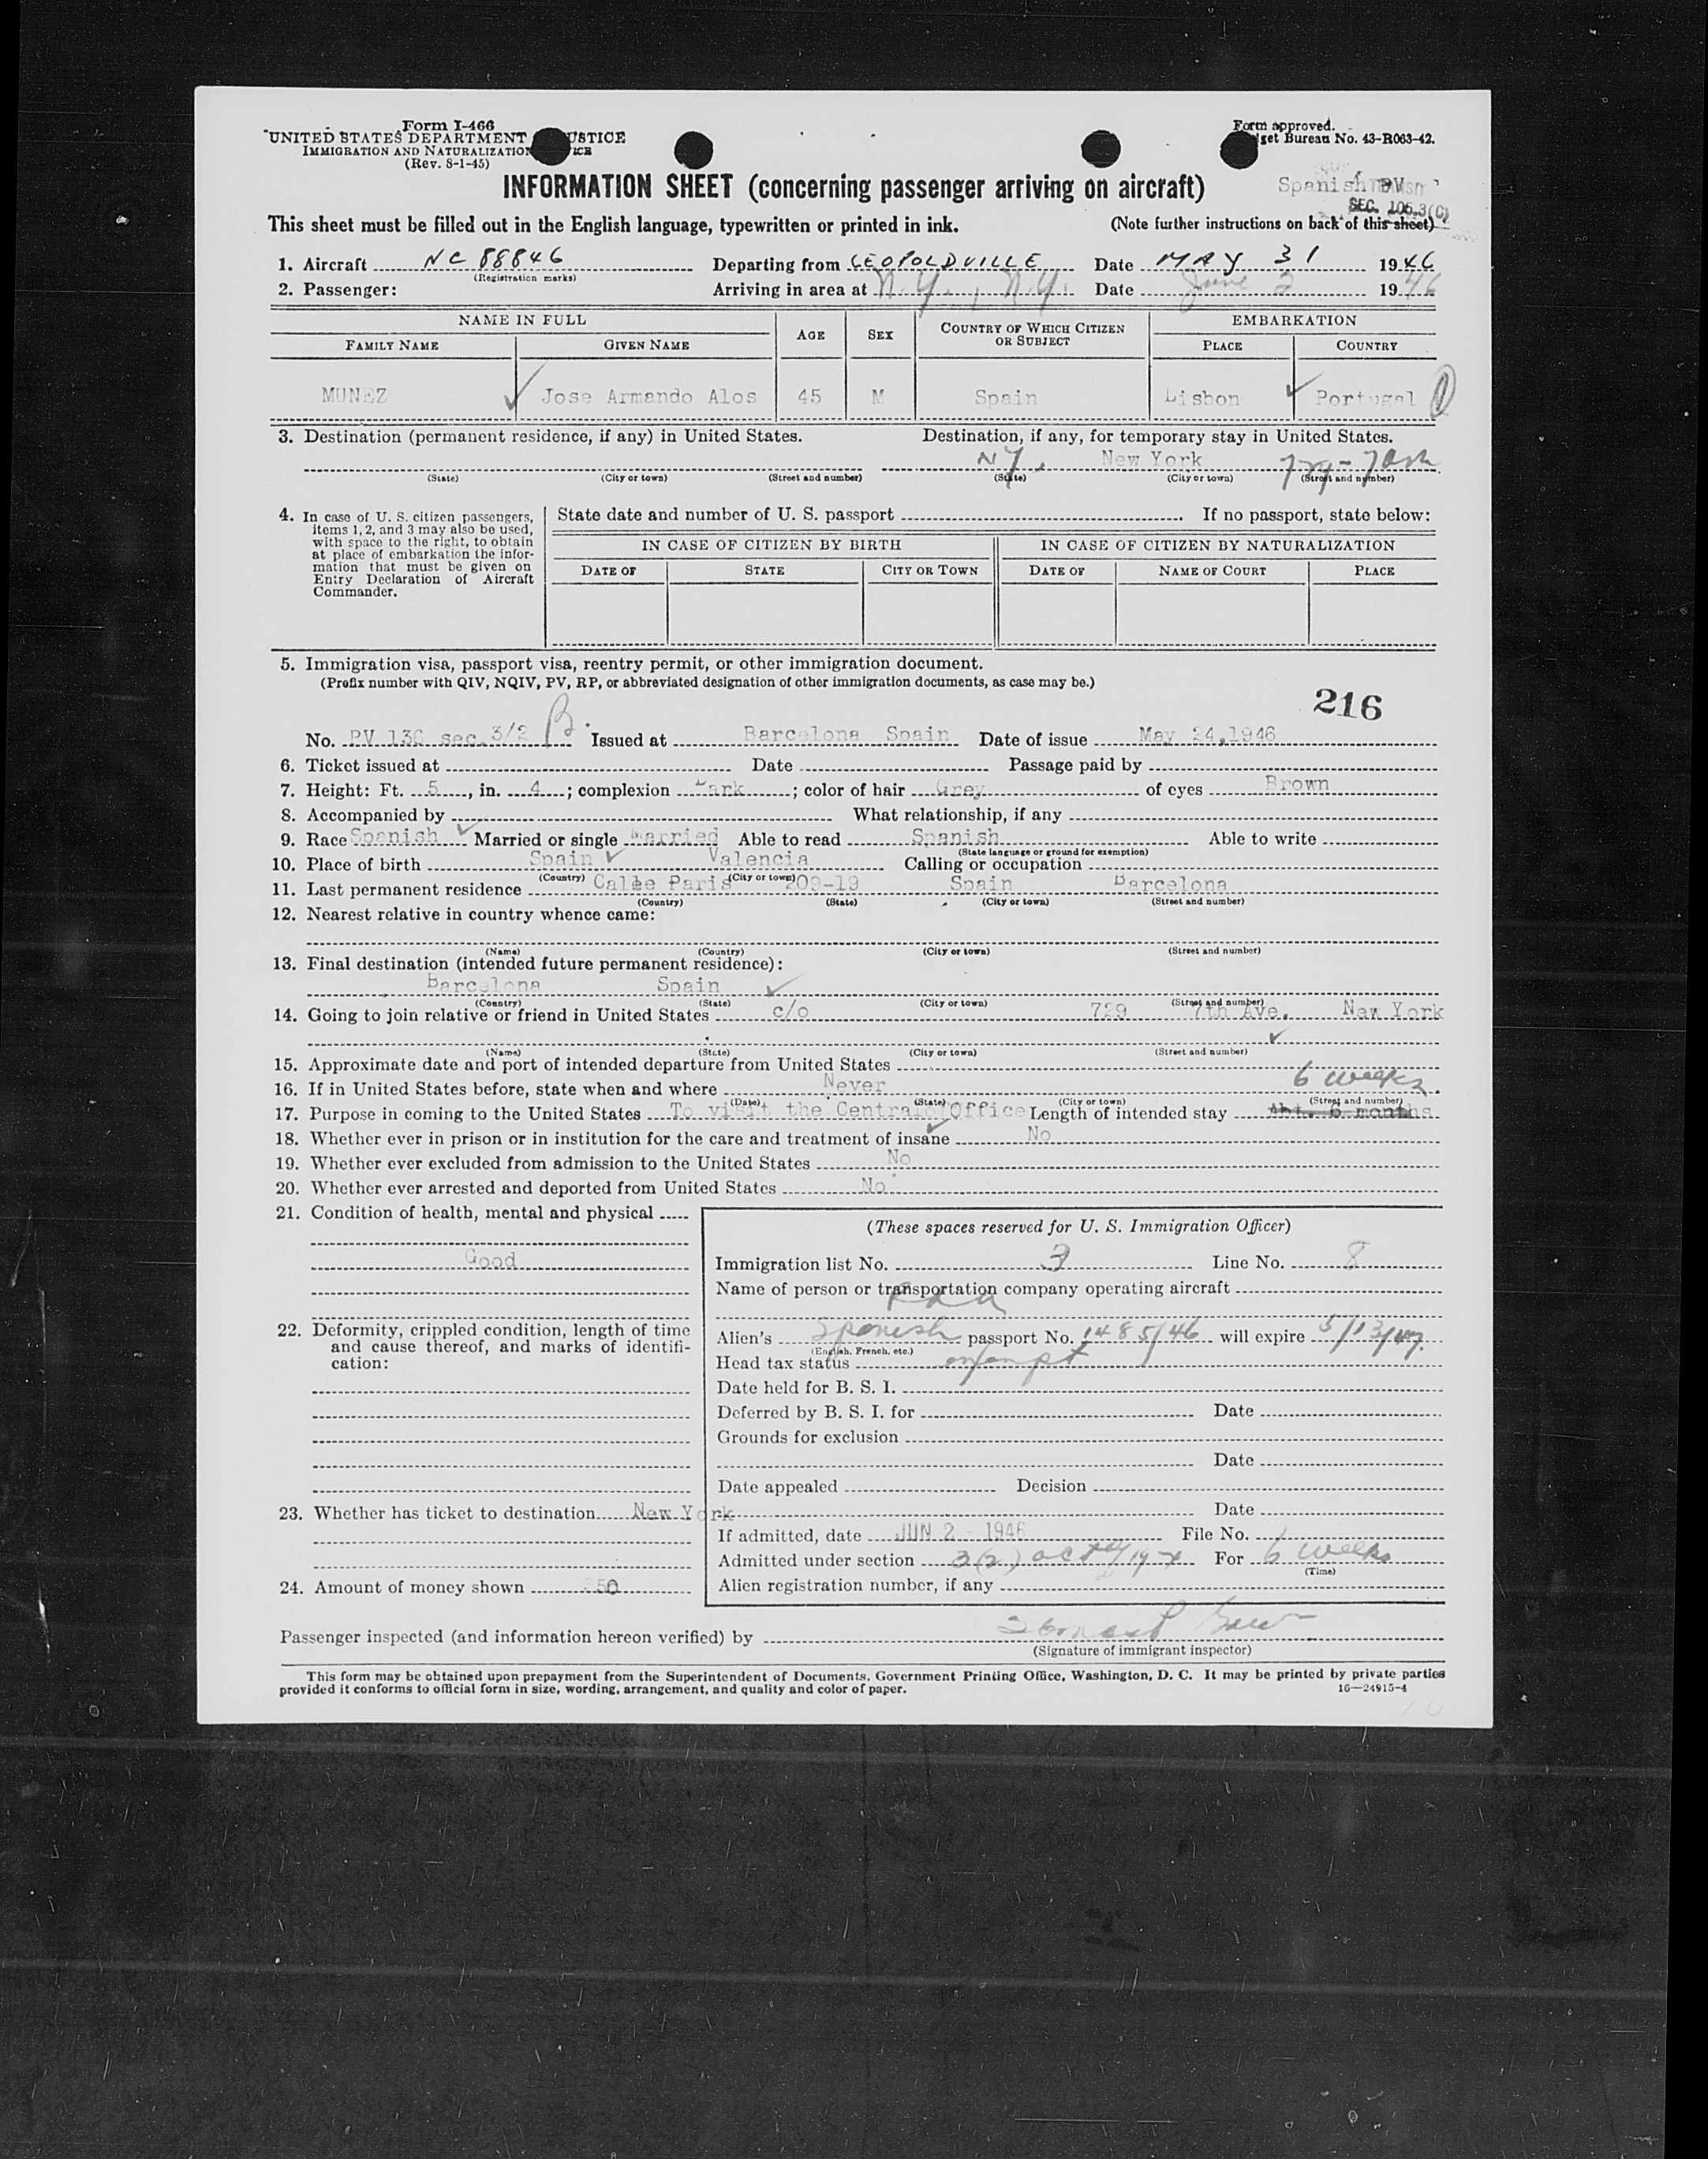 Form I-466
UNITED STATES DEPARTMENT USTICE
IMMIGRATION AND NATURALIZATION ICE
(Rev. 8-1-45)
Form approved.
get Bureau No. 43-R063-42.
INFORMATION SHEET (concerning passenger arriving on aircraft)
Spanish PV
SEC. 106.3(C)
This sheet must be filled out in the English language, typewritten or printed in ink.
(Note further instructions on back of this sheet)
1. Aircraft NC 88846 Departing from LEOPOLDVILLE Date MAY 31 1946
(Registration marks)
2. Passenger: Arriving in area at N.Y., N.Y. Date June 2 1946
NAME IN FULL AGE SEX COUNTRY OF WHICH CITIZEN OR SUBJECT EMBARKATION
FAMILY NAME GIVEN NAME PLACE COUNTRY
MUNEZ Jose Armando Alos 45 M Spain Lisbon Portugal
3. Destination (permanent residence, if any) in United States. Destination, if any, for temporary stay in United States.
NY, New York 729-7 Ave
(State) (City or town) (Street and number) (State) (City or town) (Street and number)
4. In case of U. S. citizen passengers, items 1, 2, and 3 may also be used, with space to the right, to obtain at place of embarkation the information that must be given on Entry Declaration of Aircraft Commander.
State date and number of U. S. passport If no passport, state below:
IN CASE OF CITIZEN BY BIRTH IN CASE OF CITIZEN BY NATURALIZATION
DATE OF STATE CITY OR TOWN DATE OF NAME OF COURT PLACE
5. Immigration visa, passport visa, reentry permit, or other immigration document.
(Prefix number with QIV, NQIV, PV, RP, or abbreviated designation of other immigration documents, as case may be.)
216
No. PV 130 sec.3/2 B. Issued at Barcelona Spain Date of issue May 24,1946
6. Ticket issued at Date Passage paid by
7. Height: Ft. 5, in. 4; complexion Dark; color of hair Grey of eyes Brown
8. Accompanied by What relationship, if any
9. Race Spanish Married or single Married Able to read Spanish Able to write
(State language or ground for exemption)
10. Place of birth Spain Valencia Calling or occupation
(Country) (City or town)
11. Last permanent residence Calle Paris 209-19 Spain Barcelona
(Country) (State) (City or town) (Street and number)
12. Nearest relative in country whence came:
(Name) (Country) (City or town) (Street and number)
13. Final destination (intended future permanent residence):
Barcelona Spain
(Country) (State) (City or town) (Street and number)
14. Going to join relative or friend in United States c/o 729 7th Ave. New York
(Name) (State) (City or town) (Street and number)
15. Approximate date and port of intended departure from United States
16. If in United States before, state when and where Never 6 weeks.
(Date) (State) (City or town) (Street and number)
17. Purpose in coming to the United States To visit the Central Office Length of intended stay Abt. 6 months
18. Whether ever in prison or in institution for the care and treatment of insane No
19. Whether ever excluded from admission to the United States No
20. Whether ever arrested and deported from United States No
21. Condition of health, mental and physical
Good
22. Deformity, crippled condition, length of time and cause thereof, and marks of identification:
23. Whether has ticket to destination New York
24. Amount of money shown 50
(These spaces reserved for U. S. Immigration Officer)
Immigration list No. 3 Line No. 8
Name of person or transportation company operating aircraft
PAA
Alien's Spanish passport No. 1485/46 will expire 5/13/47
(English, French, etc.)
Head tax status exempt
Date held for B. S. I.
Deferred by B. S. I. for Date
Grounds for exclusion
Date
Date appealed Decision
Date
If admitted, date JUN 2 - 1946 File No.
Admitted under section 3(2) act of 1924 For 6 weeks
(Time)
Alien registration number, if any
Passenger inspected (and information hereon verified) by
(Signature of immigrant inspector)
This form may be obtained upon prepayment from the Superintendent of Documents, Government Printing Office, Washington, D. C. It may be printed by private parties
provided it conforms to official form in size, wording, arrangement, and quality and color of paper. 16—24915-4